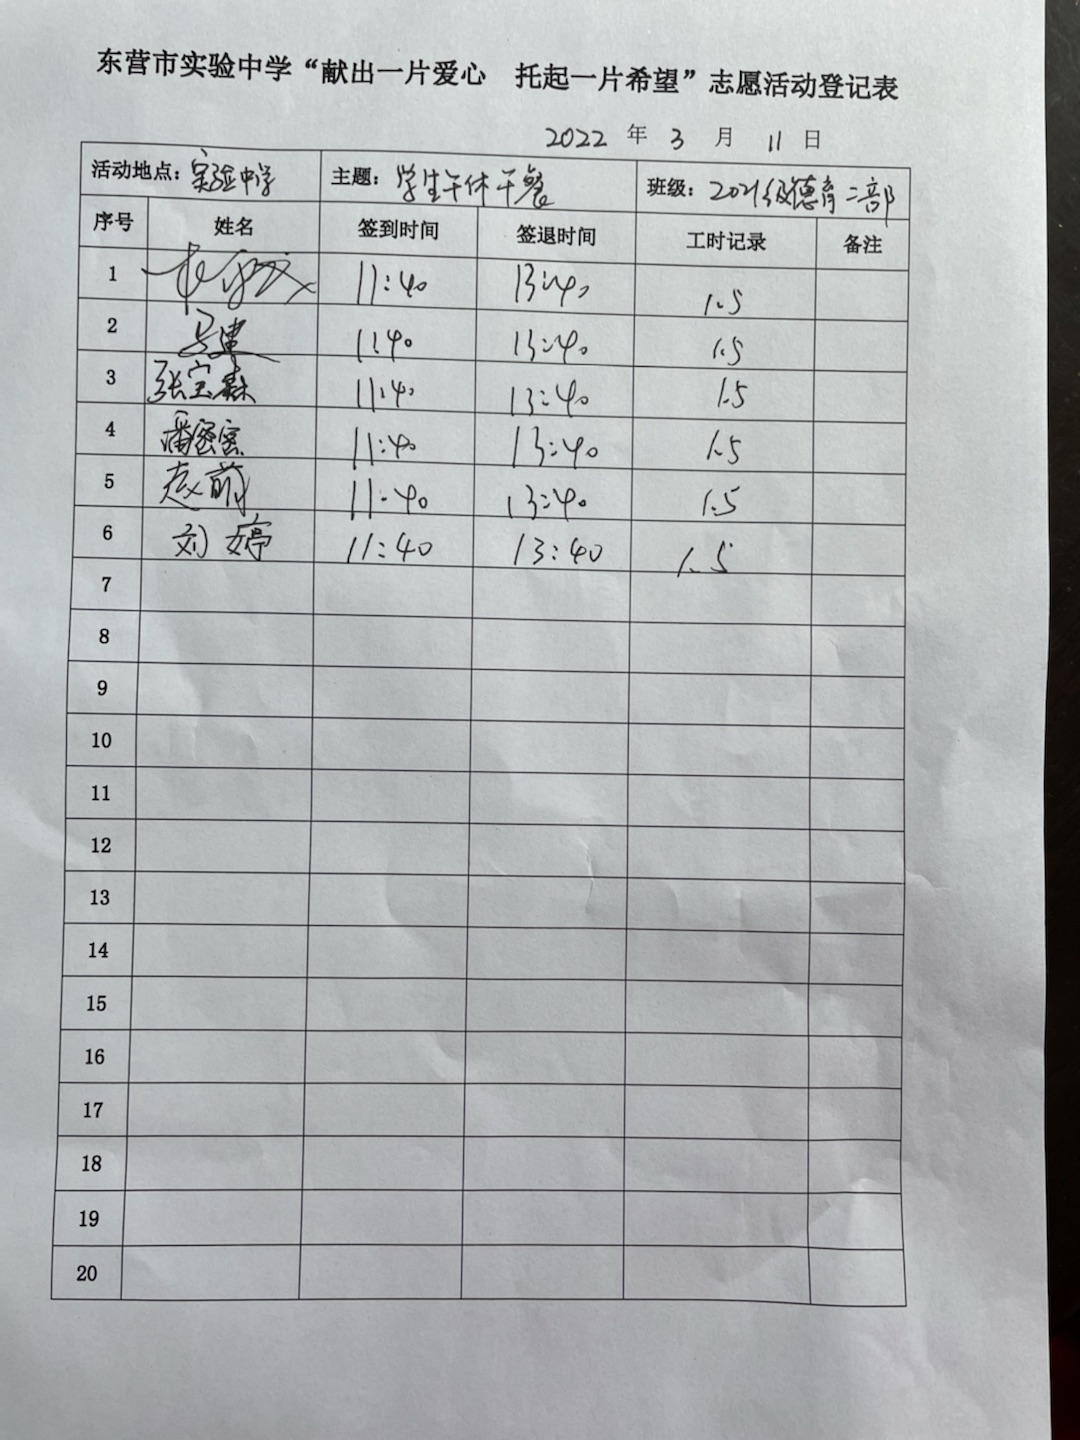 东营市实验中学“献出一片爱心 托起一片希望”志愿活动登记表
2022 年 3 月 11 日
活动地点：实验中学 主题：学生午休午餐 班级：2021级德育二部
序号 姓名 签到时间 签退时间 工时记录 备注
1 11:40 13:40 1.5
2 马建 11:40 13:40 1.5
3 张宝森 11:40 13:40 1.5
4 潘密密 11:40 13:40 1.5
5 赵前 11:40 13:40 1.5
6 刘婷 11:40 13:40 1.5
7
8
9
10
11
12
13
14
15
16
17
18
19
20